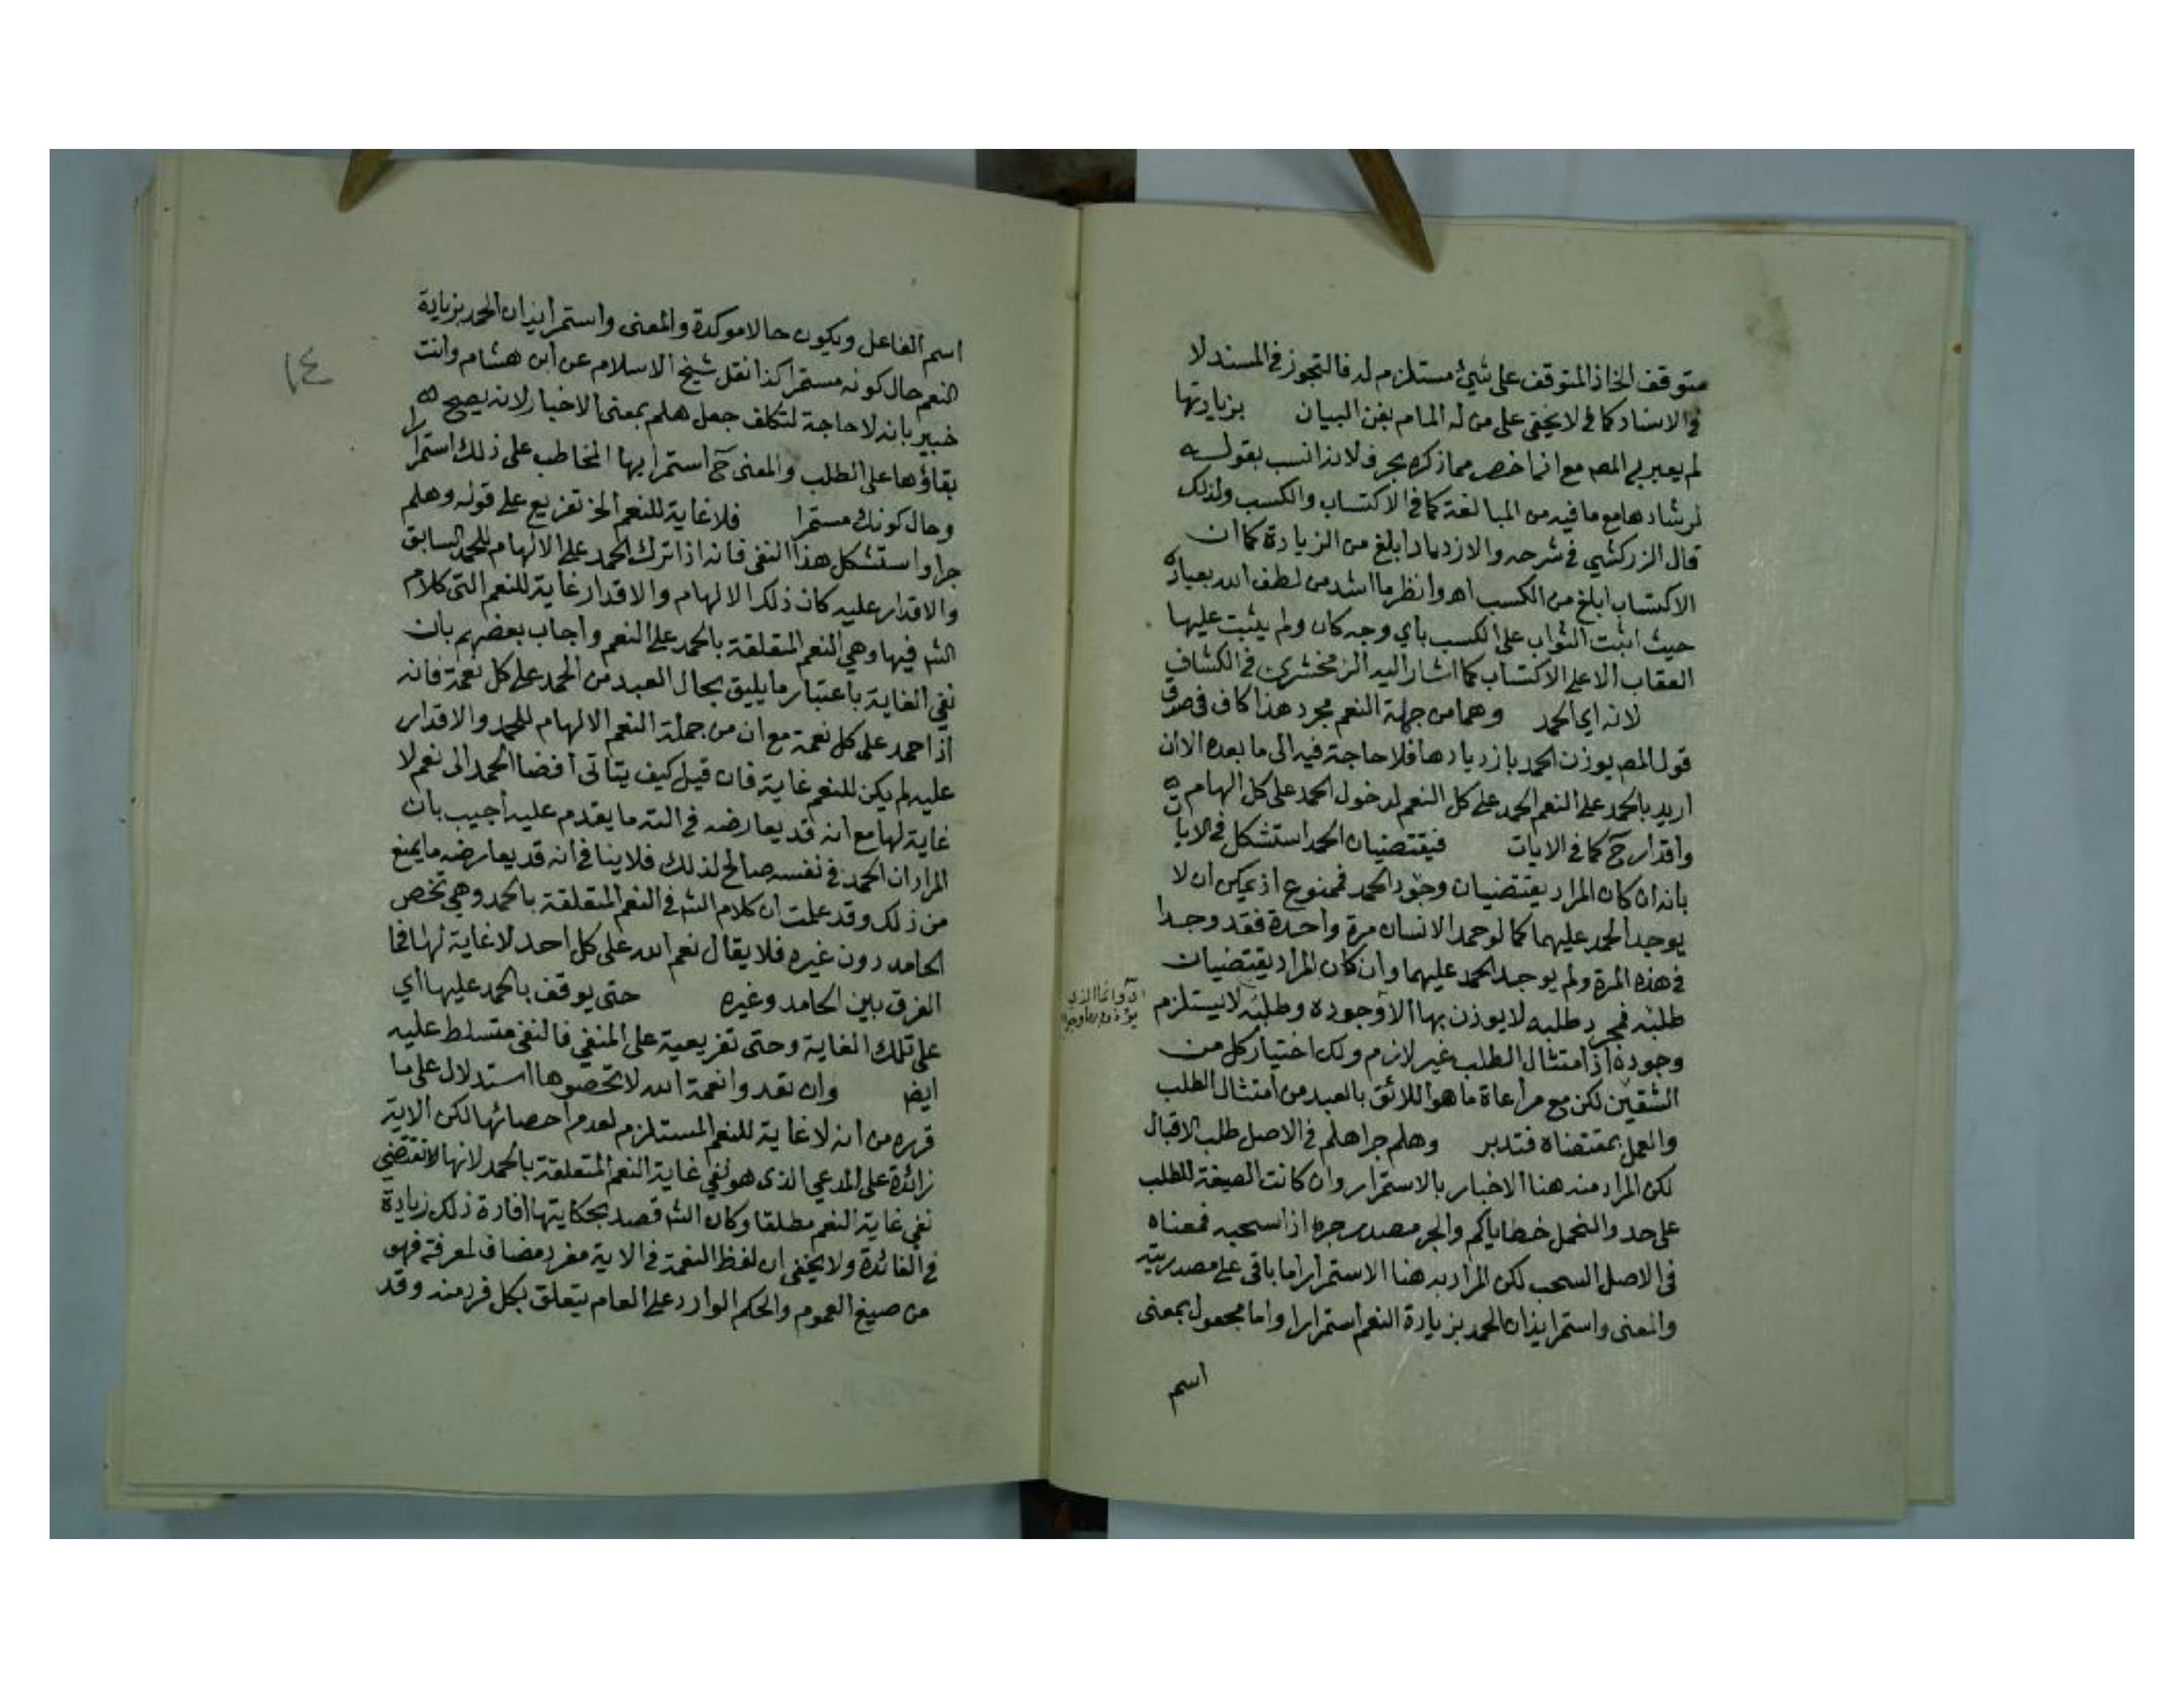 متوقف الخ اذ المتوقف على شيء مستلزم له فالتجوز في المسند لا
في الاسناد كما لا يخفى على من له المام بفن البيان بزيادتها
لم يعبر به المص مع انه اخصر مما ذكره بحرف لانه انسب بقوله
لرشادها مع ما فيه من المبالغة كما في الاكتساب والكسب ولذلك
قال الزركشي في شرحه والازدياد ابلغ من الزيادة كما ان
الاكتساب ابلغ من الكسب اهـ وانظر ما اشد من لطف الله بعباده
حيث اثبت الثواب على الكسب باي وجه كان ولم يثبت عليها
العقاب الا على الاكتساب كما اشار اليه الزمخشري في الكشاف
لانه اي الحمد وهما من جملة النعم مجرد هذا كاف في صدق
قول المص يوذن الحمد بازديادها فلا حاجة فيه الى ما بعده الا ان
اريد بالحمد على النعم الحمد على كل النعم لدخول الحمد على كل الهام
واقدار ح كما في الايات فيقتضيان الحمد استشكل في الايات
بانه ان كان المراد يقتضيان وجود الحمد فممنوع اذ يمكن ان لا
يوجد الحمد عليهما كما لو حمد الانسان مرة واحدة فقد وجدا
في هذه المرة ولم يوجد الحمد عليهما وان كان المراد يقتضيان
طلبه فمجرد طلبه لا يوذن بها الا وجوده وطلبه لا يستلزم
وجوده اذ امتثال الطلب غير لازم ولك اختيار كل من
الشقين لكن مع مراعاة ما هو اللائق بالعبد من امتثال الطلب
والعمل بمقتضاه فتدبر وهلم جرا هلم في الاصل طلب الاقبال
لكن المراد منه هنا الاخبار بالاستمرار وان كانت الصيغة للطلب
على حد ولنحمل خطاياكم والجر مصدر جره اذا سحبه فمعناه
في الاصل السحب لكن المراد به هنا الاستمرار اما باقي على مصدريته
والمعنى واستمر ايذان الحمد بزيادة النعم استمرارا واما مجعول بمعنى
اسم
١٤
اسم الفاعل ويكون حالا موكدة والمعنى واستمر ايذان الحمد بزيادة
النعم حال كونه مستمرا كذا نقل شيخ الاسلام عن ابن هشام وانت
خبير بانه لا حاجة لتكلف جعل هلم بمعنى الاخبار لانه يصح
بقاؤها على الطلب والمعنى ح استمر ايها المخاطب على ذلك استمرارا
وحال كونك مستمرا فلا غاية للنعم الخ تفريع على قوله وهلم
جرا واستشكل هذا النفي فانه اذا ترك الحمد على الالهام للحمد السابق
والاقدار عليه كان ذلك الالهام والاقدار غاية للنعم التي كلام
الشه فيها وهي النعم المتعلقة بالحمد على النعم واجاب بعضهم بان
نفي الغاية باعتبار ما يليق بحال العبد من الحمد على كل نعمة فانه
اذا حمد على كل نعمة مع ان من جملة النعم الالهام للحمد والاقدار
عليه لم يكن للنعم غاية فان قيل كيف يتاتى افضا الحمد الى نعم لا
غاية لها مع انه قد يعارضه في الته ما يقدم عليه اجيب بان
المراد ان الحمد في نفسه صالح لذلك فلا ينافي انه قد يعارضه ما يمنع
من ذلك وقد علمت ان كلام الشه في النعم المتعلقة بالحمد وهي تخص
الحامد دون غيره فلا يقال نعم الله على كل احد لا غاية لها فما
الفرق بين الحامد وغيره حتى يوقف بالحمد عليها اي
على تلك الغاية وحتى تفريعية على المنفي فالنفي متسلط عليه
ايض وان تعدوا نعمة الله لا تحصوها استدلال على ما
قرره من انه لا غاية للنعم المستلزم لعدم احصائها لكن الاية
زائدة على المدعي الذي هو نفي غاية النعم المتعلقة بالحمد لانها تقتضي
نفي غاية النعم مطلقا وكان الشه قصد بحكايتها افادة ذلك زيادة
في الفائدة ولا يخفى ان لفظ النعمة في الاية مفرد مضاف لمعرفة فهو
من صيغ العموم والحكم الوارد على العام يتعلق بكل فرد منه وقد